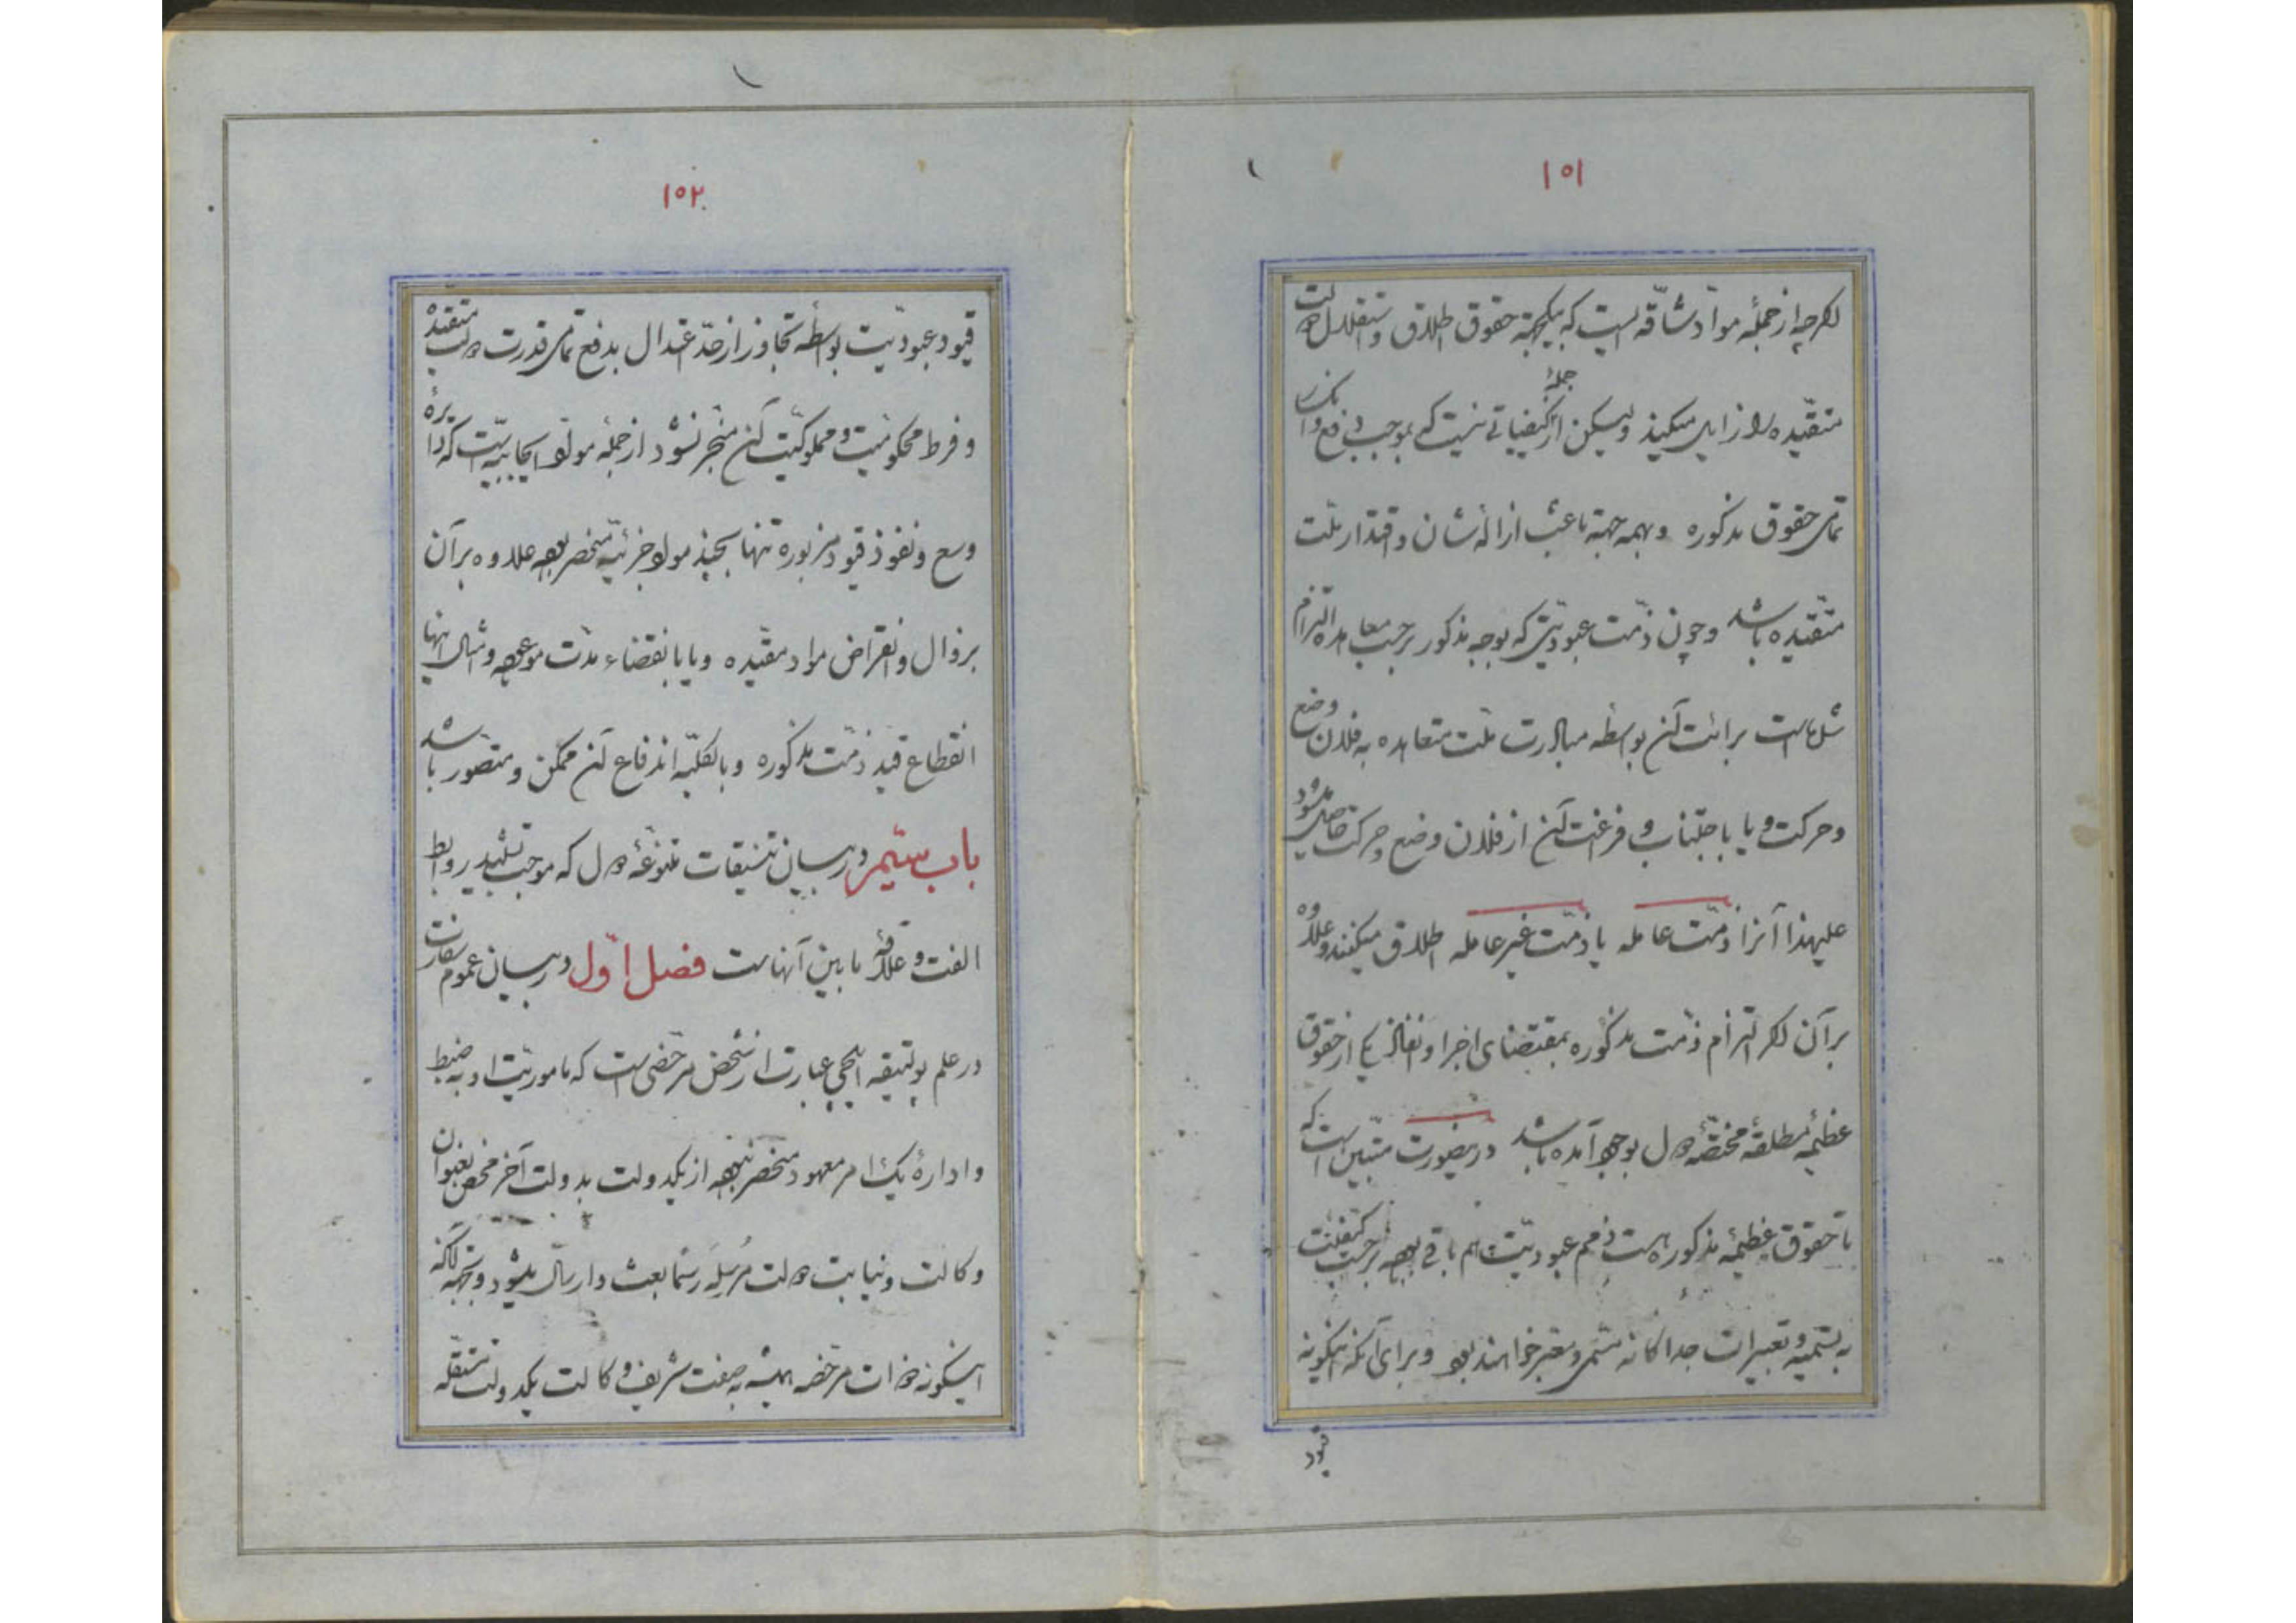 ١٥١
اگرچه از جملهٔ موادّ شاقّه ایست که بیکجهة حقوق اطلاق و استقلال دولت
متقیّده را زایل میکند ولیکن از جملهٔ کیفیاتی نیست که بموجب دفع و انکار
تمامی حقوق مذکوره و بهمه جهة باعث ازالهٔ شان و اقتدار ملّت
متقیّده باشد و چون ذمّت عبودیّتی که بوجه مذکور برحسب معاهده التزام
شده است برائت آن بواسطه مبادرت ملّت متعاهده به فلان وضع
و حرکت و یا باجتناب و فراغت آن از فلان وضع و حرکت حاصل میشود
علیهذا آنرا ذمّت عامله یا ذمّت غیر عامله اطلاق میکنند و علاوه
برآن اگر التزام ذمّت مذکوره بمقتضای اجرا و انفاذ یکی از حقوق
عظیمهٔ مطلقهٔ مختصّهٔ دول بوجود آمده باشد درینصورت متبیّن است که
تا حقوق عظیمهٔ مذکوره هست ذمم عبودیّت هم باقی بوده برحسب کیفیّت
به تسمیه و تعبیرات جداگانه مسمّی و معبّر خواهند بود و برای آنکه اینگونه
قیود
١٥٢
قیود عبودیّت بواسطهٔ تجاوز از حدّ اعتدال بدفع تمامی قدرت دولت متقیّده
و فرط محکومیّت و مملوکیّت آن منجر نشود از جملهٔ موادّ ایجابیّه ایست که دایرهٔ
وسع و نفوذ قیود مزبوره تنها بچند مواد جزئیّه منحصر بوده علاوه برآن
بزوال و انقراض مواد مقیّده و یا بانقضاء مدّت موعوده و امثال اینها
انقطاع قید ذمّت مذکوره و بالکلّیه اندفاع آن ممکن و متصّور باشد
باب سیّم در بیان تنسیقات متنوعهٔ دول که موجب تشیید روابط
الفت و علاقهٔ ما بین آنهاست فصل اوّل در بیان عموم سفارت
در علم پولتیقه ایلچی عبارت از شخص مرخّصی است که ماموریّت او به ضبط
و ادارهٔ یک امر معهود منحصر نبوده از یکدولت بدولت آخر محض بعنوان
وکالت و نیابت دولت مُرسِلَه رسماً بعث و ارسال میشود و بجهة آنکه
اینگونه ذوات مرخّصه همیشه به صفت شریف وکالت یکدولت مستقلّه